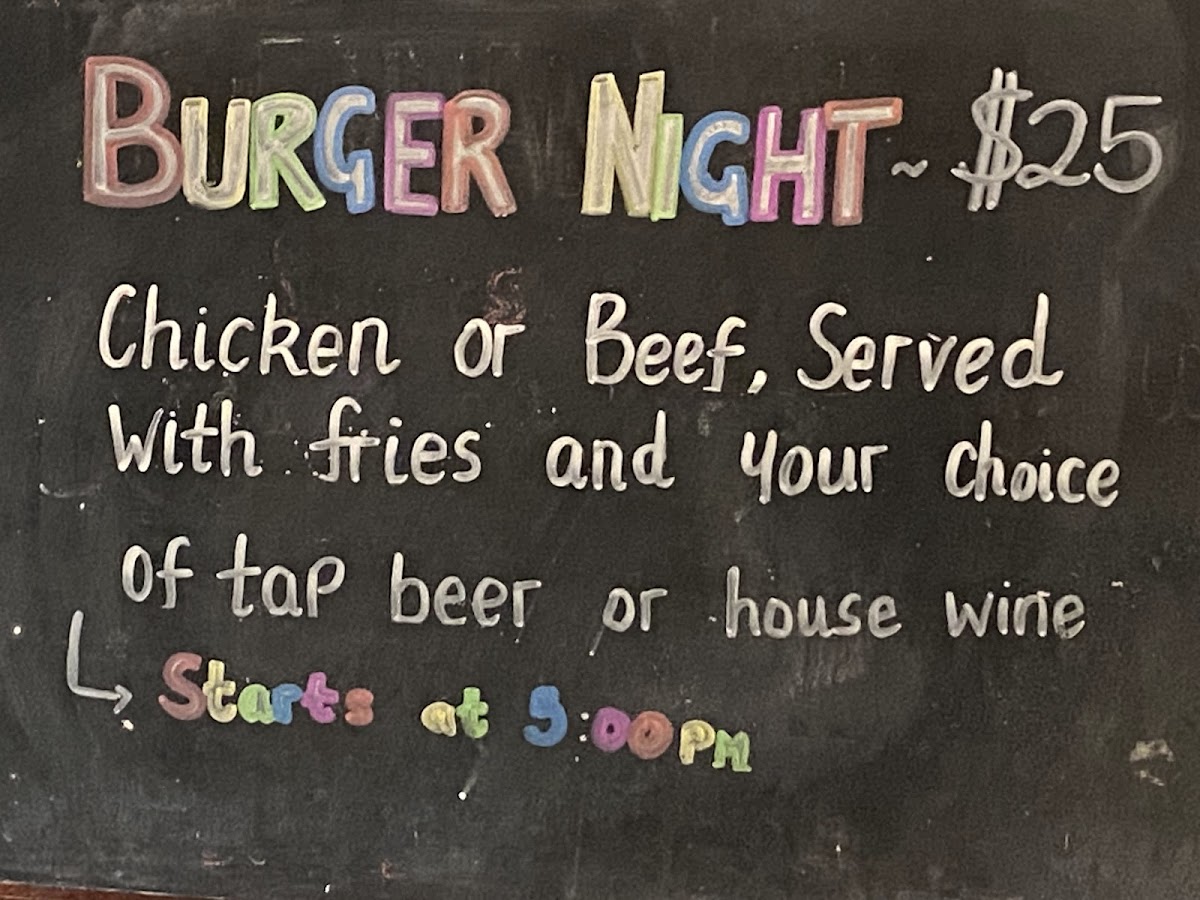 BURGER NIGHT ~ $25
Chicken or Beef, Served
With fries and your choice
of tap beer or house wine
Starts at 5:00PM